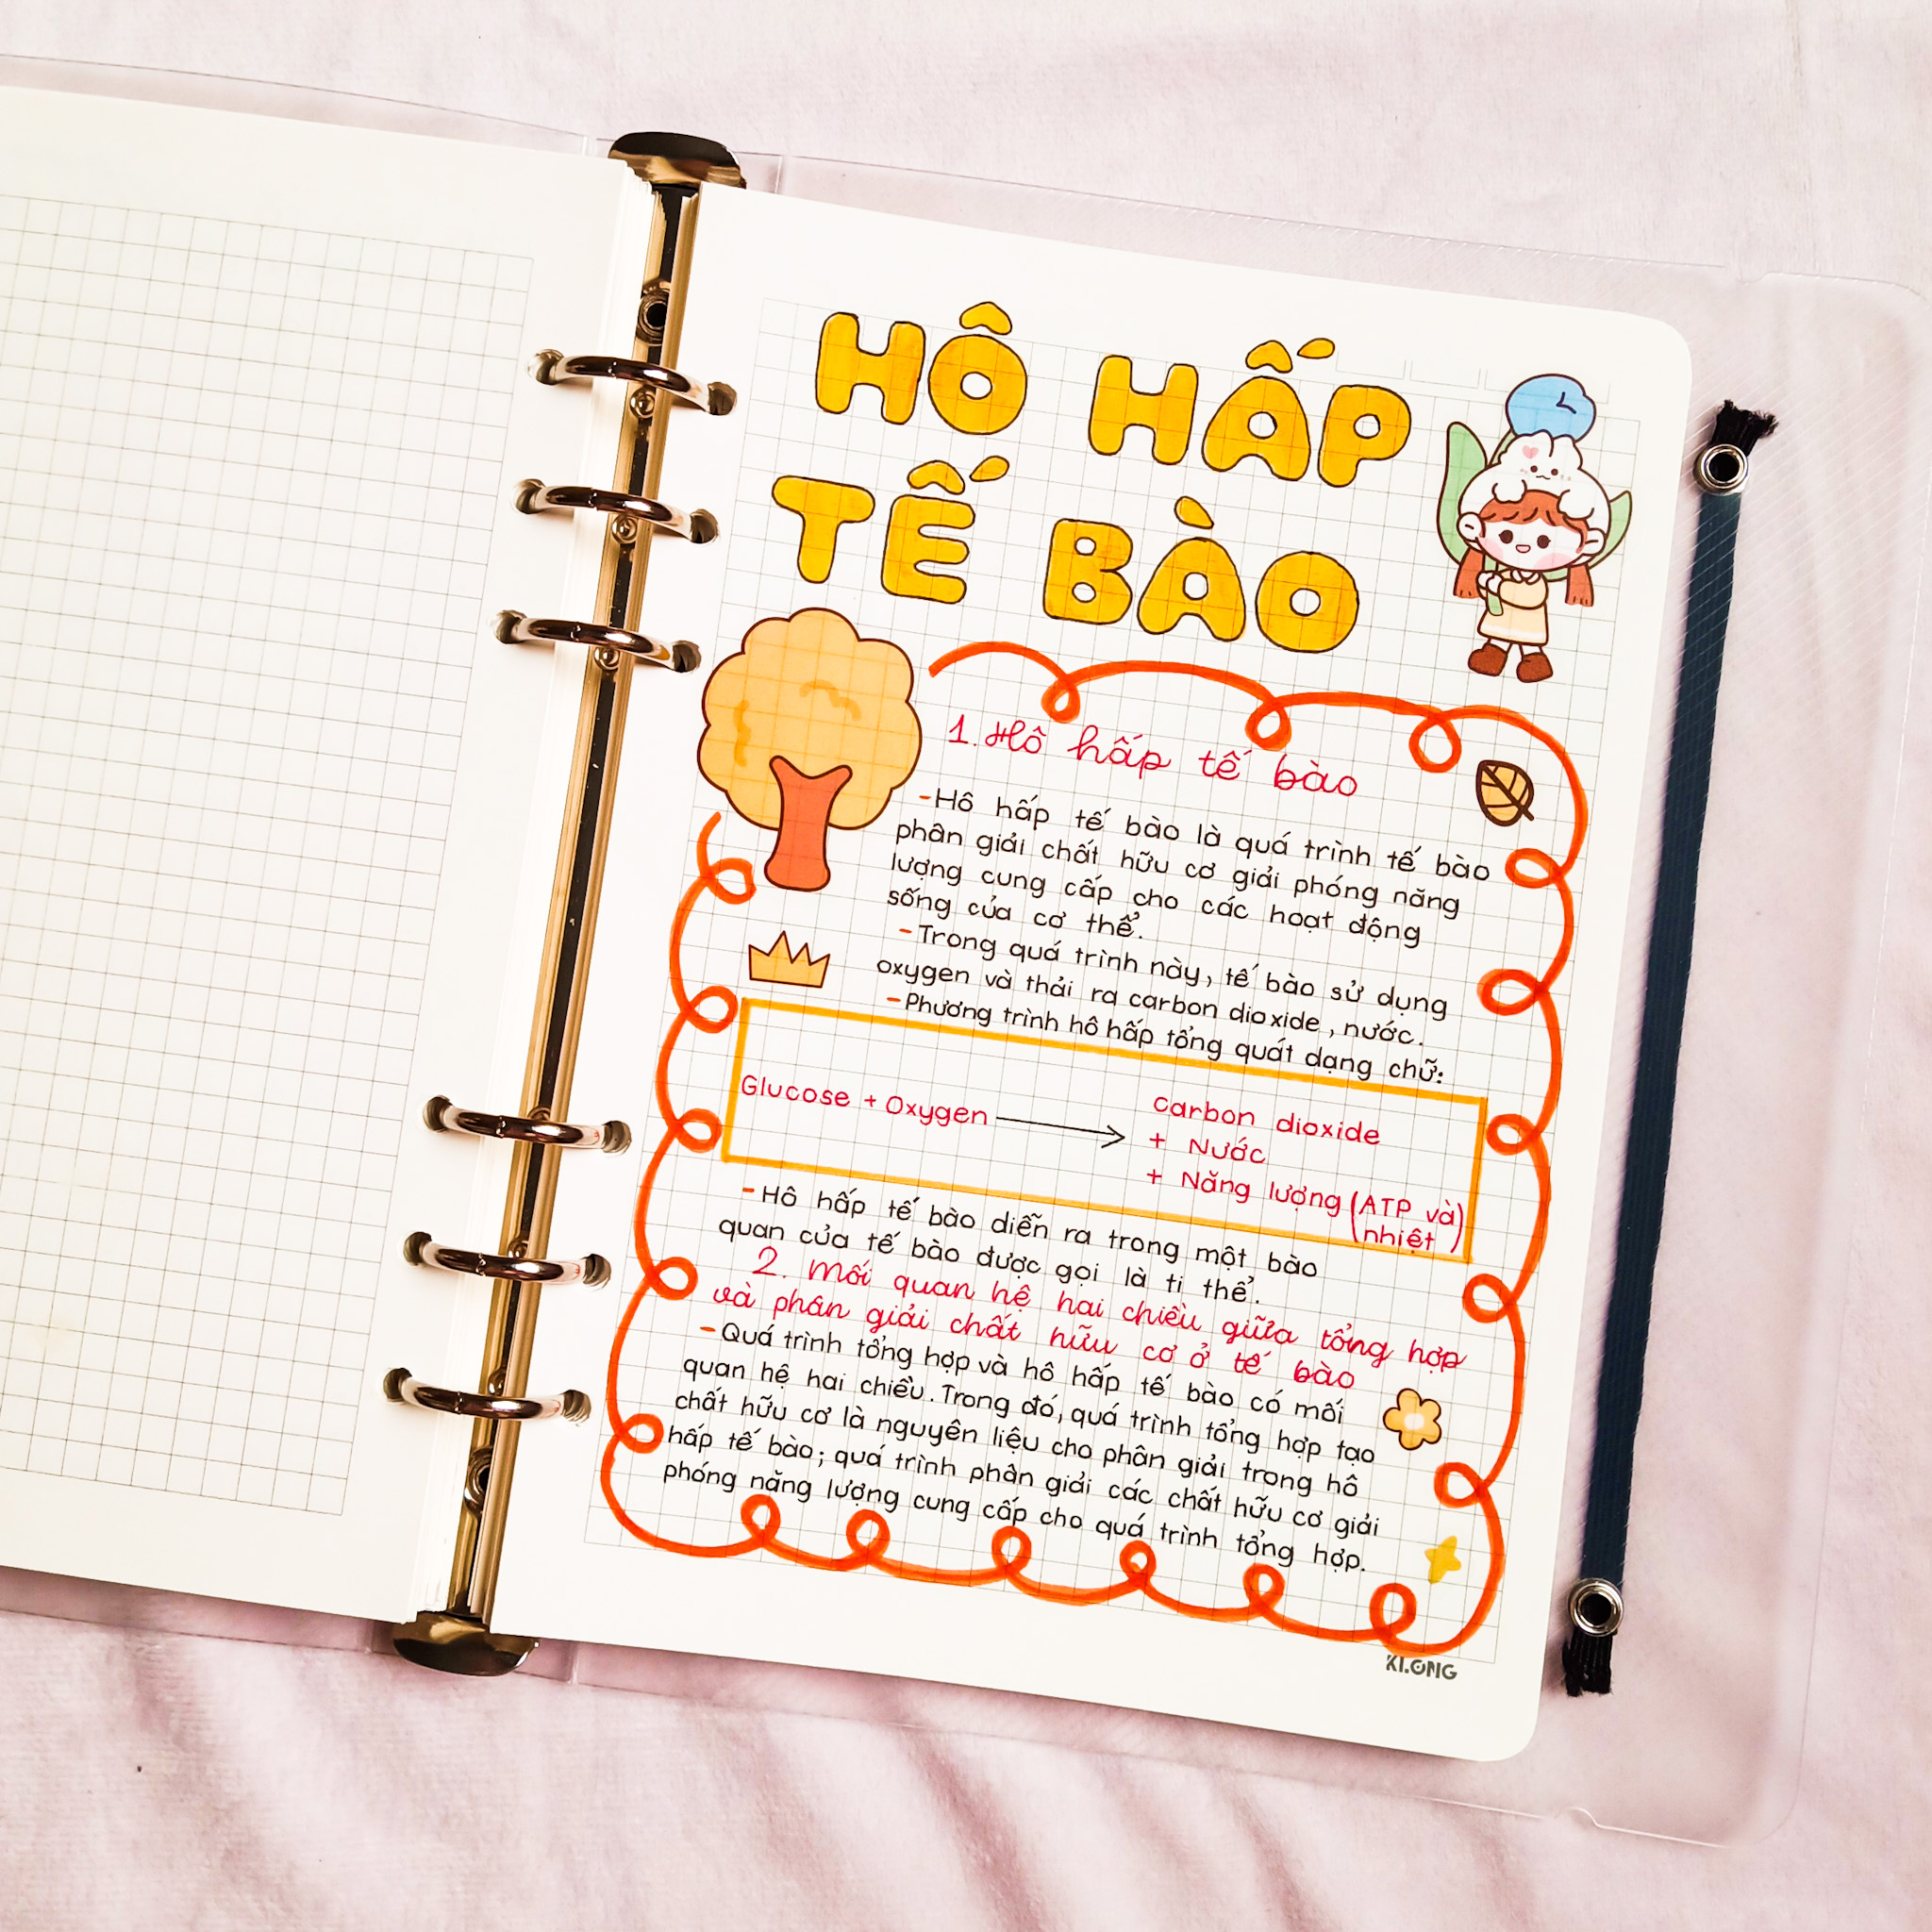 HÔ HẤP
TẾ BÀO
1. Hô hấp tế bào
- Hô hấp tế bào là quá trình tế bào
phân giải chất hữu cơ giải phóng năng
lượng cung cấp cho các hoạt động
sống của cơ thể.
- Trong quá trình này, tế bào sử dụng
oxygen và thải ra carbon dioxide, nước.
- Phương trình hô hấp tổng quát dạng chữ:
Glucose + Oxygen → carbon dioxide
+ Nước
+ Năng lượng (ATP và
nhiệt)
- Hô hấp tế bào diễn ra trong một bào
quan của tế bào được gọi là ti thể.
2. Mối quan hệ hai chiều giữa tổng hợp
và phân giải chất hữu cơ ở tế bào
- Quá trình tổng hợp và hô hấp tế bào có mối
quan hệ hai chiều. Trong đó, quá trình tổng hợp tạo
chất hữu cơ là nguyên liệu cho phân giải trong hô
hấp tế bào; quá trình phân giải các chất hữu cơ giải
phóng năng lượng cung cấp cho quá trình tổng hợp.
KLONG